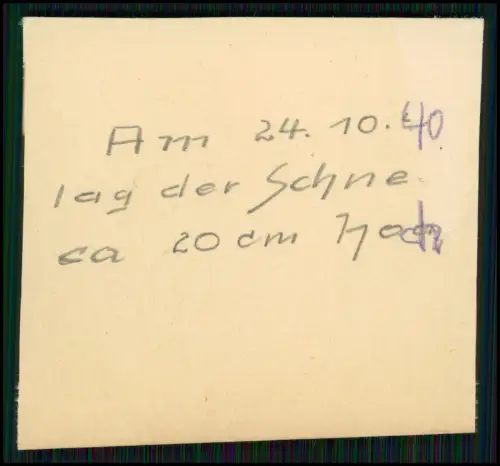 Am 24. 10. 40
lag der Schne.
ca 20 cm hoch